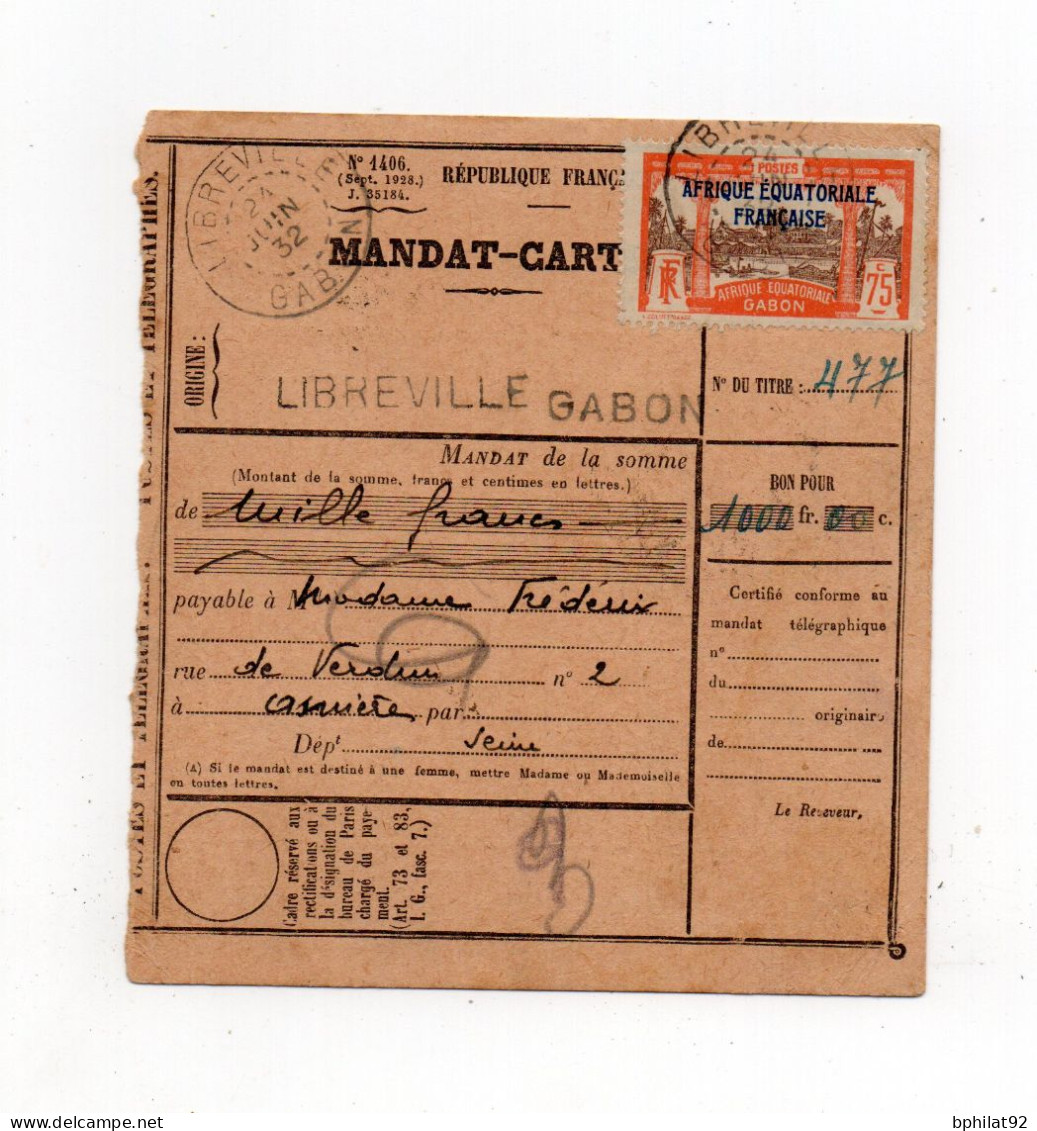 LIBREVILLE
24
JUIN
32
GABON
Nº 1406.
(Sept. 1928.)
J. 35184.
RÉPUBLIQUE FRANÇA
MANDAT-CART
24
POSTES
AFRIQUE ÉQUATORIALE
FRANÇAISE
RF
AFRIQUE EQUATORIALE
GABON
75 c
POSTES ET TÉLÉGRAPHES.
ORIGINE :
LIBREVILLE GABON
Nº DU TITRE : 477
MANDAT de la somme
(Montant de la somme, francs et centimes en lettres.)
de Mille francs
BON POUR
1000 fr. 00 c.
payable à M Madame Frédérix
rue de Verdun nº 2
à Asnière par
Dépt Seine
(A) Si le mandat est destiné à une femme, mettre Madame ou Mademoiselle
en toutes lettres.
Certifié conforme au
mandat télégraphique
nº
du
originaire
de
Le Receveur,
Cadre réservé aux
rectifications ou à
la désignation du
bureau de Paris
chargé du paye-
ment.
(Art. 73 et 83,
I. G., fasc. 7.)
bphilat92